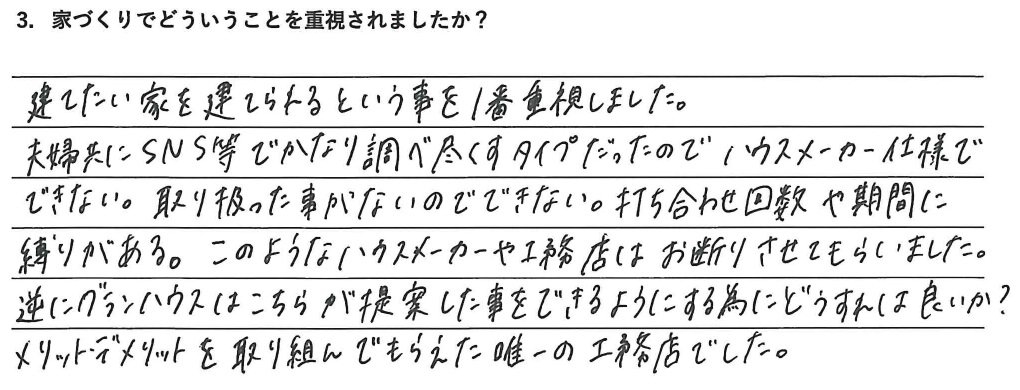 3. 家づくりでどういうことを重視されましたか？
建てたい家を建てられるという事を1番重視しました。
夫婦共にSNS等でかなり調べ尽くすタイプだったのでハウスメーカー仕様で
できない。取り扱った事がないのでできない。打ち合わせ回数や期間に
縛りがある。このようなハウスメーカーや工務店はお断りさせてもらいました。
逆にグランハウスはこちらが提案した事をできるようにする為にどうすれば良いか？
メリット・デメリットを取り組んでもらえた唯一の工務店でした。